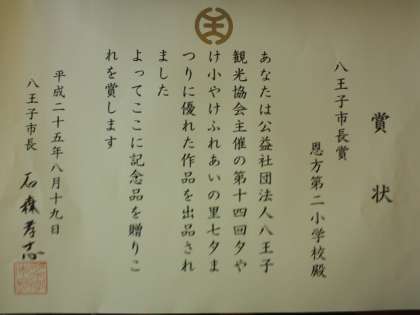 賞状
八王子市長賞
恩方第二小学校殿
あなたは公益社団法人八王子
観光協会主催の第十四回夕や
け小やけふれあいの里七夕ま
つりに優れた作品を出品され
ました
よってここに記念品を贈りこ
れを賞します
平成二十五年八月十九日
八王子市長 石森孝志